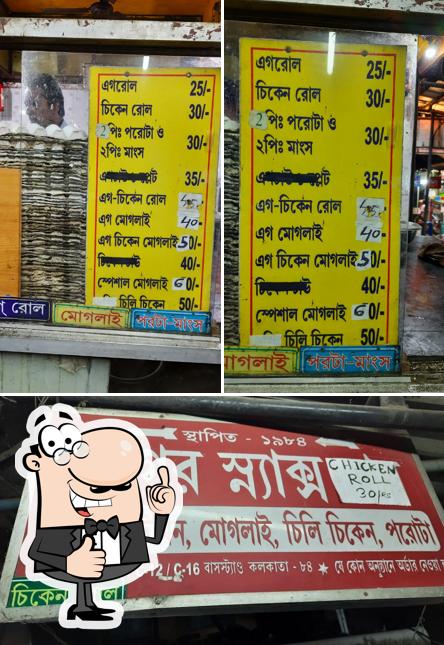 এগরোল 25/-
চিকেন রোল 30/-
2 পিঃ পরোটা ও
২পিঃ মাংস 30/-
35/-
এগ-চিকেন রোল 45-
এগ মোগলাই 40-
এগ চিকেন মোগলাই 50/-
40/-
স্পেশাল মোগলাই 60/-
চিলি চিকেন 50/-
রোল মোগলাই পরটা-মাংস
এগরোল 25/-
চিকেন রোল 30/-
2 পিঃ পরোটা ও
২পিঃ মাংস 30/-
35/-
এগ-চিকেন রোল 45-
এগ মোগলাই 40-
এগ চিকেন মোগলাই 50/-
40/-
স্পেশাল মোগলাই 60/-
চিলি চিকেন 50/-
মোগলাই পরটা-মাংস
স্থাপিত - ১৯৮৪
স্ন্যাক্স
CHICKEN
ROLL
30/RS
মোগলাই, চিলি চিকেন, পরোটা
C-16 বাসস্ট্যাণ্ড কলকাতা - ৮৪ ★ যে কোন অনুষ্ঠানে অর্ডার নেওয়া
চিকেন